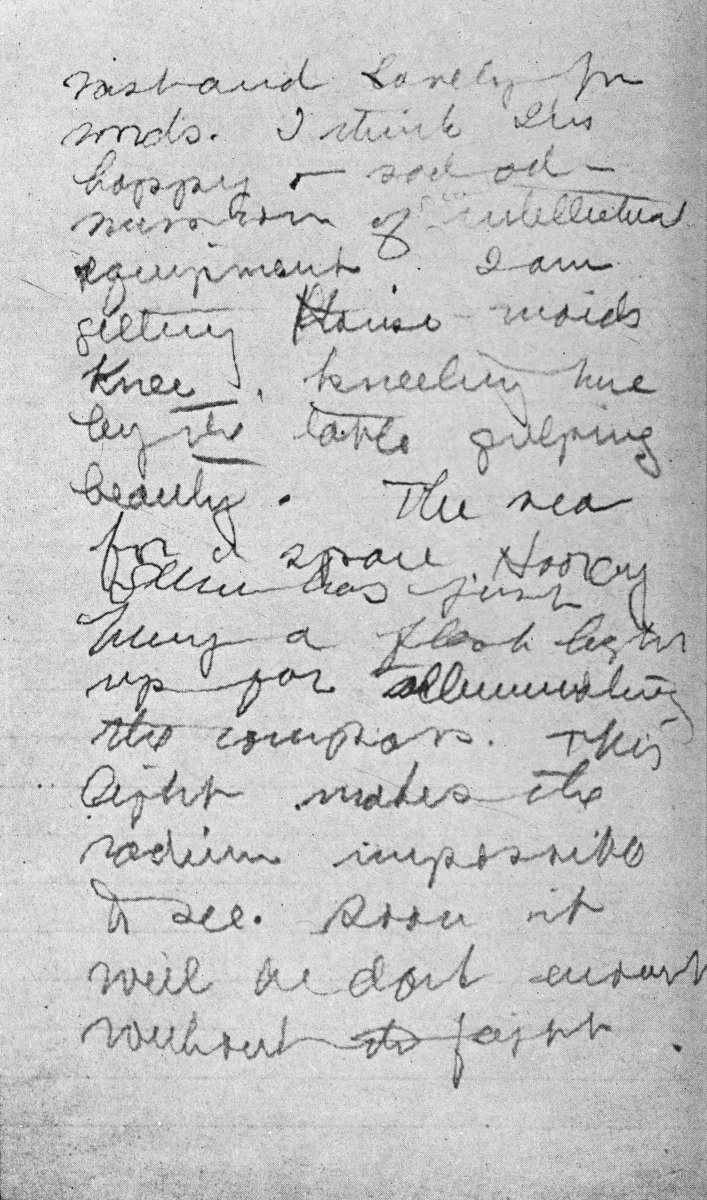 vast and lovely for
words. I think
happy - sad ad-
mission of intellectual
equipment I am
getting House-maids
Knee, kneeling here
by the table gulping
beauty. The sea
for a space. Hooray
Slim has just
hung a flash light
up for illuminating
the compass. This
light makes the
radium impossible
to see. Soon it
will be dark enough
without the light.